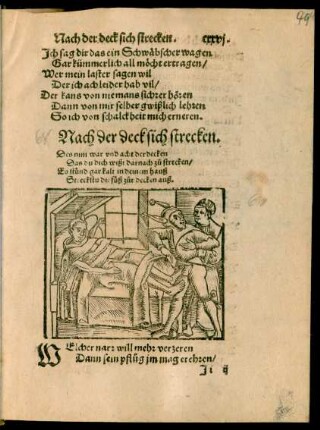 Nach der deck sich strecken. cxxvj.
Ich sag dir das ein Schwäbscher wagen
Gar kümmerlich all möcht ertragen/
Wer mein laster sagen wil
Der ich ach leider hab vil/
Der kans von niemans sichrer hören
Dann von mir selber gwißlich lehren
So ich von schalckheit mich erneren.
Nach der deck sich strecken.
Des nim war vnd acht der decken
Das du dich wißt darnach zů strecken/
Es stünd gar kalt in deim hauß
Streckstu die füß zur decken auß.
WElcher narr will mehr verzeren
Dann sein pflůg jm mag erehren/
Ji ij